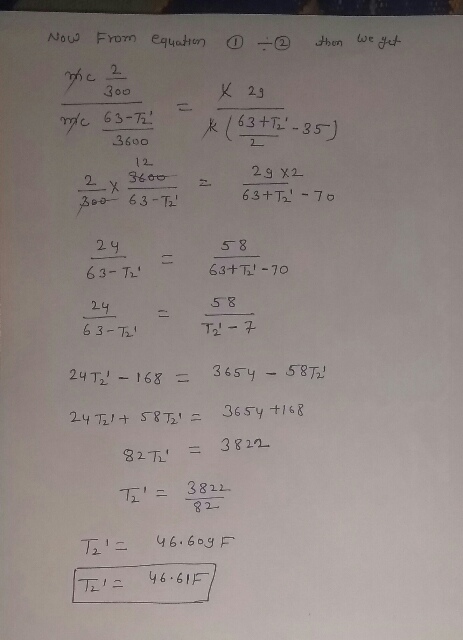 Now From equation ① ÷ ② then we get
mc 2/300 / mc 63-T₂'/3600 = K 29 / K (63+T₂'/2 - 35)
2/300 × 3600 12 / 63-T₂' = 29 × 2 / 63+T₂' - 70
24 / 63-T₂' = 58 / 63+T₂' - 70
24 / 63-T₂' = 58 / T₂' - 7
24T₂' - 168 = 3654 - 58T₂'
24T₂' + 58T₂' = 3654 + 168
82T₂' = 3822
T₂' = 3822/82
T₂' = 46.609 F
T₂' = 46.61F